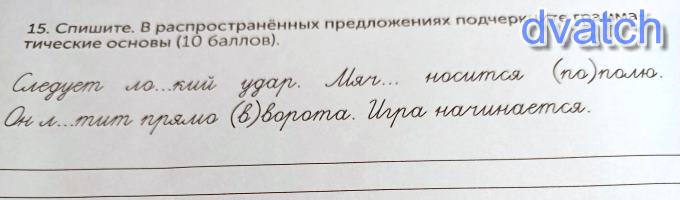 15. Спишите. В распространённых предложениях подчеркните грамма-
тические основы (10 баллов).
dvatch
Следует ло...кий удар. Мяч... носится (по)полю.
Он л...тит прямо (в)ворота. Игра начинается.